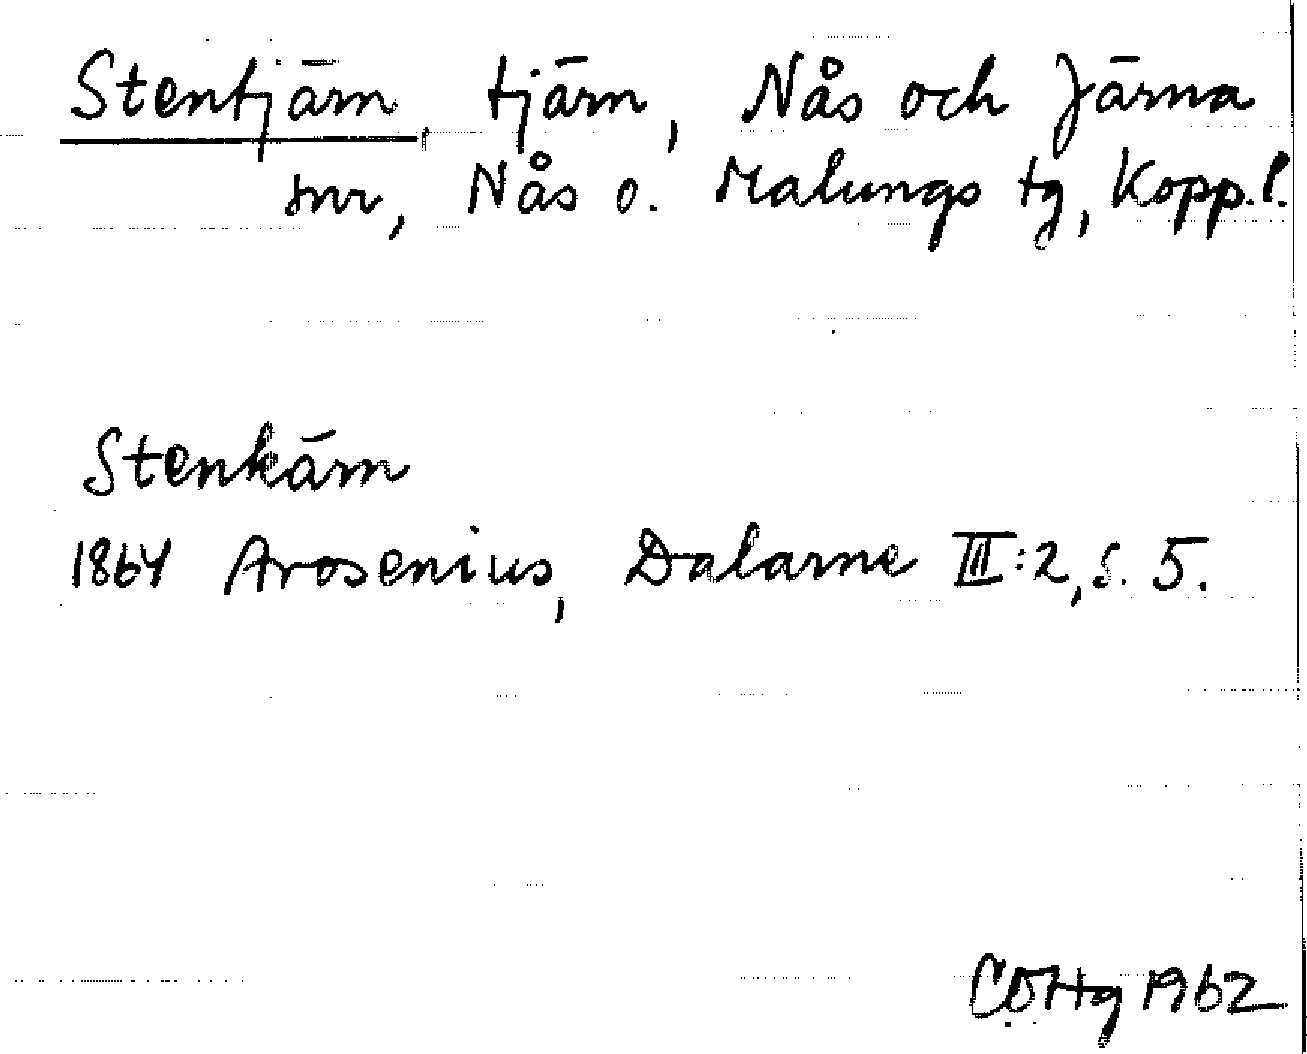 Stentjärn, tjärn, Nås och Järna
snr, Nås o. Malungs tg, Kopp.l.
Stenkärn
1864 Arosenius, Dalarne III:2, s. 5.
CDHg 1962